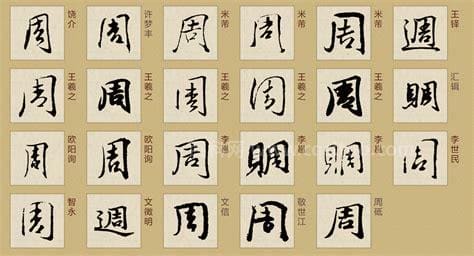 周 饶介 周 许梦丰 周 米芾 周 米芾 周 米芾 週 王铎
周 王羲之 周 王羲之 周 王羲之 周 王羲之 周 王羲之 賙 汇辑
周 欧阳询 周 欧阳询 周 李邕 賙 李邕 賙 李邕 周 李世民
周 智永 週 文徵明 周 文信 周 敬世江 周 周砥